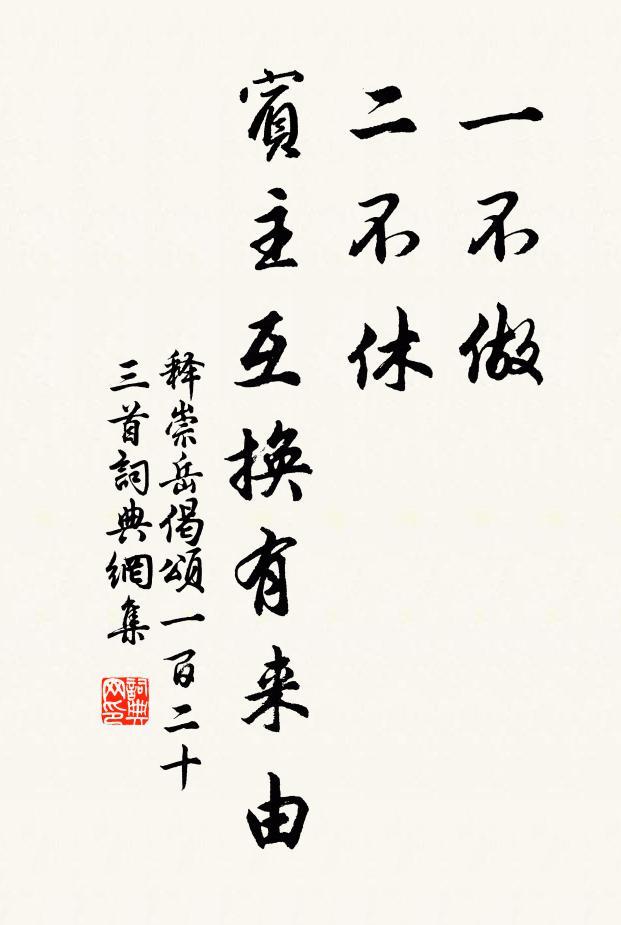 一不做
二不休
賓主互換有来由
释崇岳偈頌一百二十
三首詞典網集
詞典
网印